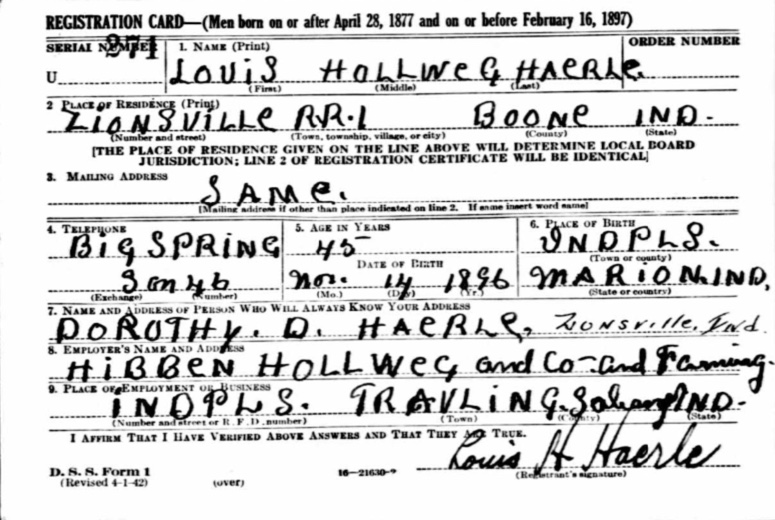 REGISTRATION CARD—(Men born on or after April 28, 1877 and on or before February 16, 1897)
SERIAL NUMBER 271 1. NAME (Print) ORDER NUMBER
U LOUIS HOLLWEG HAERLE.
(First) (Middle) (Last)
2 PLACE OF RESIDENCE (Print)
ZIONSVILLE R.R.1 BOONE IND.
(Number and street) (Town, township, village, or city) (County) (State)
[THE PLACE OF RESIDENCE GIVEN ON THE LINE ABOVE WILL DETERMINE LOCAL BOARD
JURISDICTION; LINE 2 OF REGISTRATION CERTIFICATE WILL BE IDENTICAL]
3. MAILING ADDRESS
SAME.
[Mailing address if other than place indicated on line 2. If same insert word same]
4. TELEPHONE 5. AGE IN YEARS 6. PLACE OF BIRTH
BIG SPRING 45 INDPLS.
DATE OF BIRTH (Town or county)
3 on 46 Nov. 14 1896 MARION. IND.
(Exchange) (Number) (Mo.) (Day) (Yr.) (State or country)
7. NAME AND ADDRESS OF PERSON WHO WILL ALWAYS KNOW YOUR ADDRESS
DOROTHY. D. HAERLE, Zionsville, Ind
8. EMPLOYER'S NAME AND ADDRESS
HIBBEN HOLLWEG and Co - and Farming.
9. PLACE OF EMPLOYMENT OR BUSINESS
INDPLS. TRAVLING. IND.
(Number and street or R. F. D. number) (Town) (County) (State)
I AFFIRM THAT I HAVE VERIFIED ABOVE ANSWERS AND THAT THEY ARE TRUE.
Louis H Haerle
D. S. S. Form 1 16—21630-2 (Registrant's signature)
(Revised 4-1-42) (over)